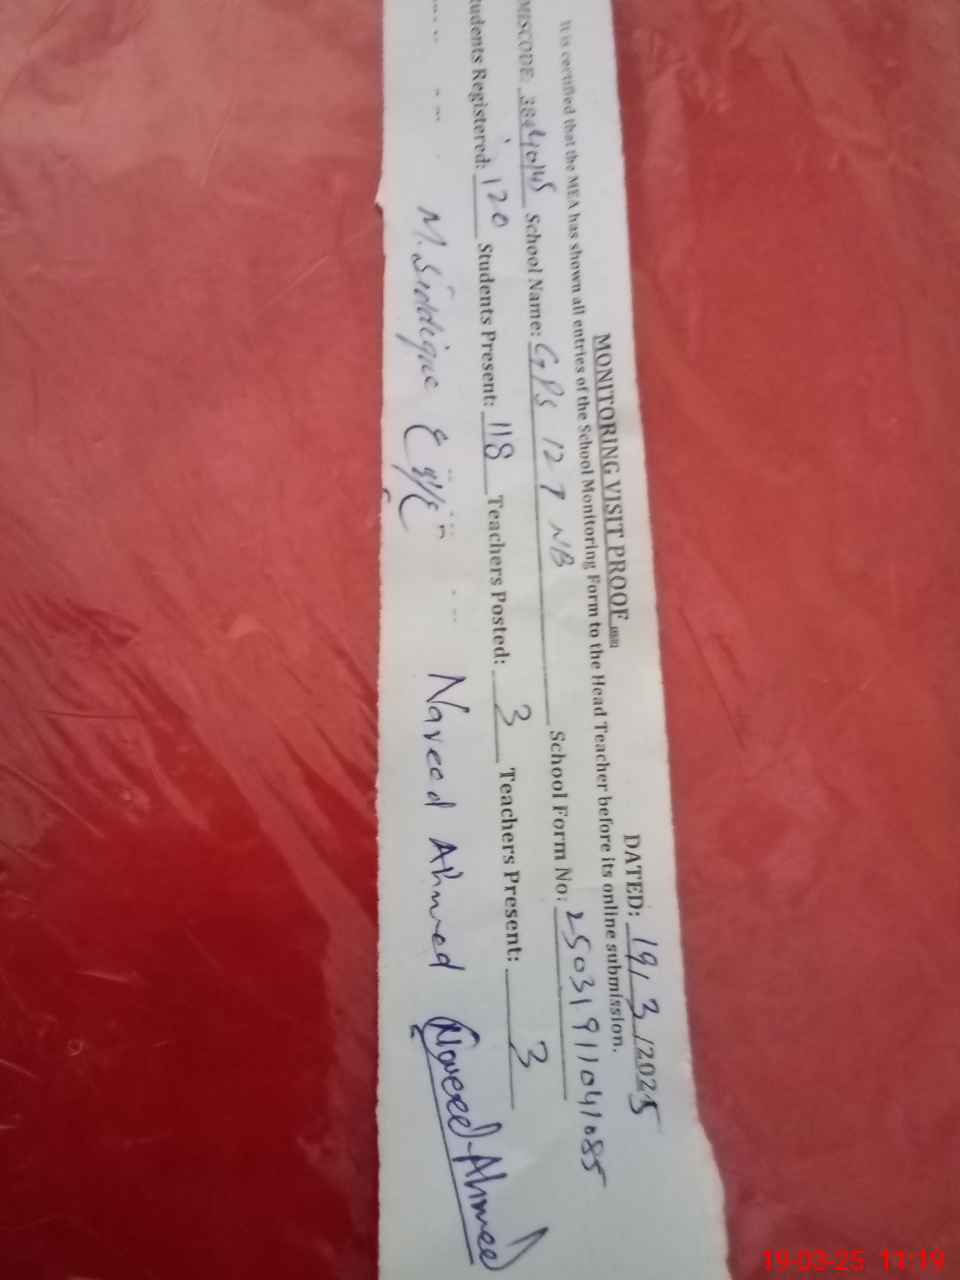 MONITORING VISIT PROOF
DATED: 19/3/2025
It is certified that the MEA has shown all entries of the School Monitoring Form to the Head Teacher before its online submission.
MISCODE: 38440145 School Name: GPS 127 NB School Form No: 25031911041085
tudents Registered: 120 Students Present: 118 Teachers Posted: 3 Teachers Present: 3
M. Siddique Naveed Ahmed Naveed Ahmed
19-03-25 11:19